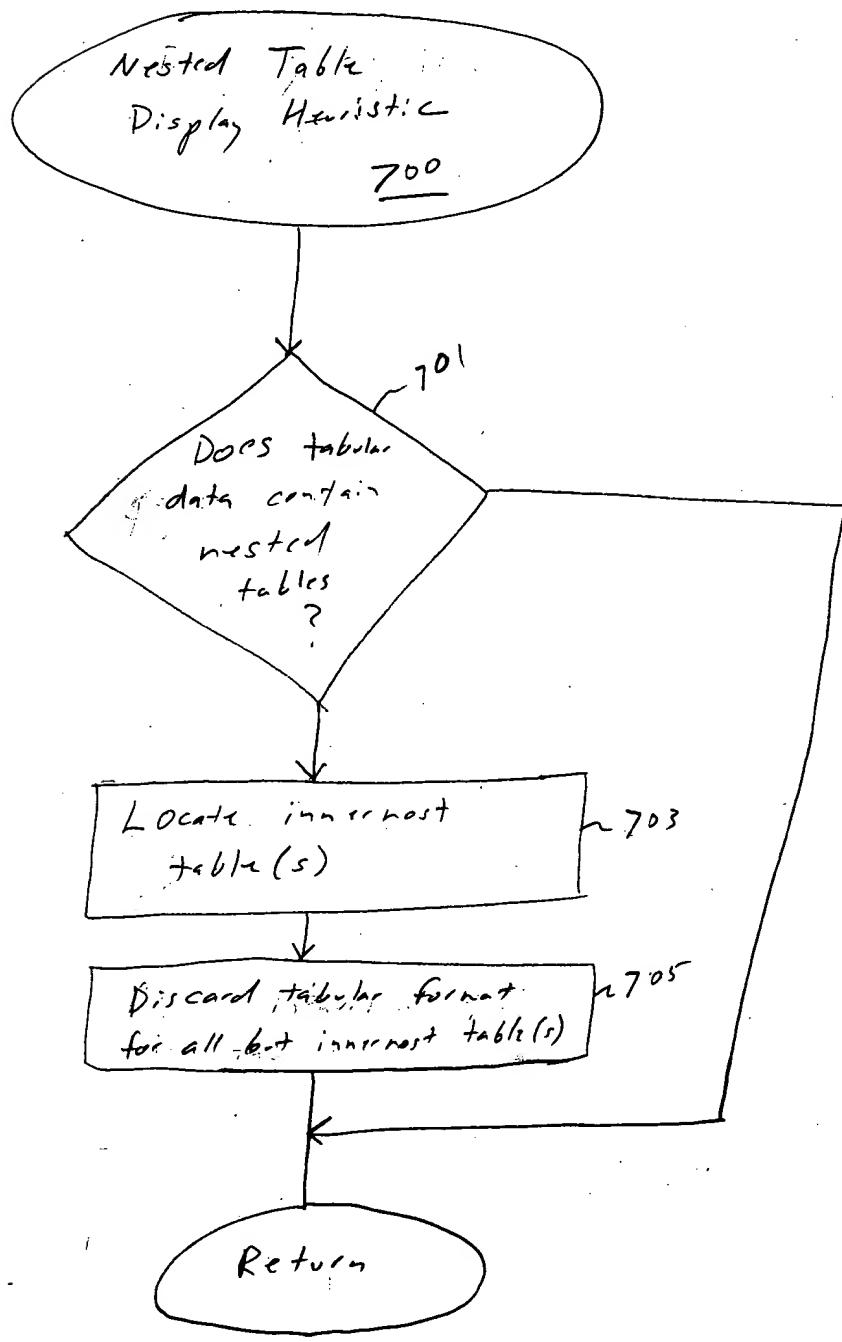 Nested Table
Display Heuristic
700
701
Does tabular
data contain
nested
tables
?
Locate innermost
table(s)
703
Discard tabular format
for all but innermost table(s)
705
Return